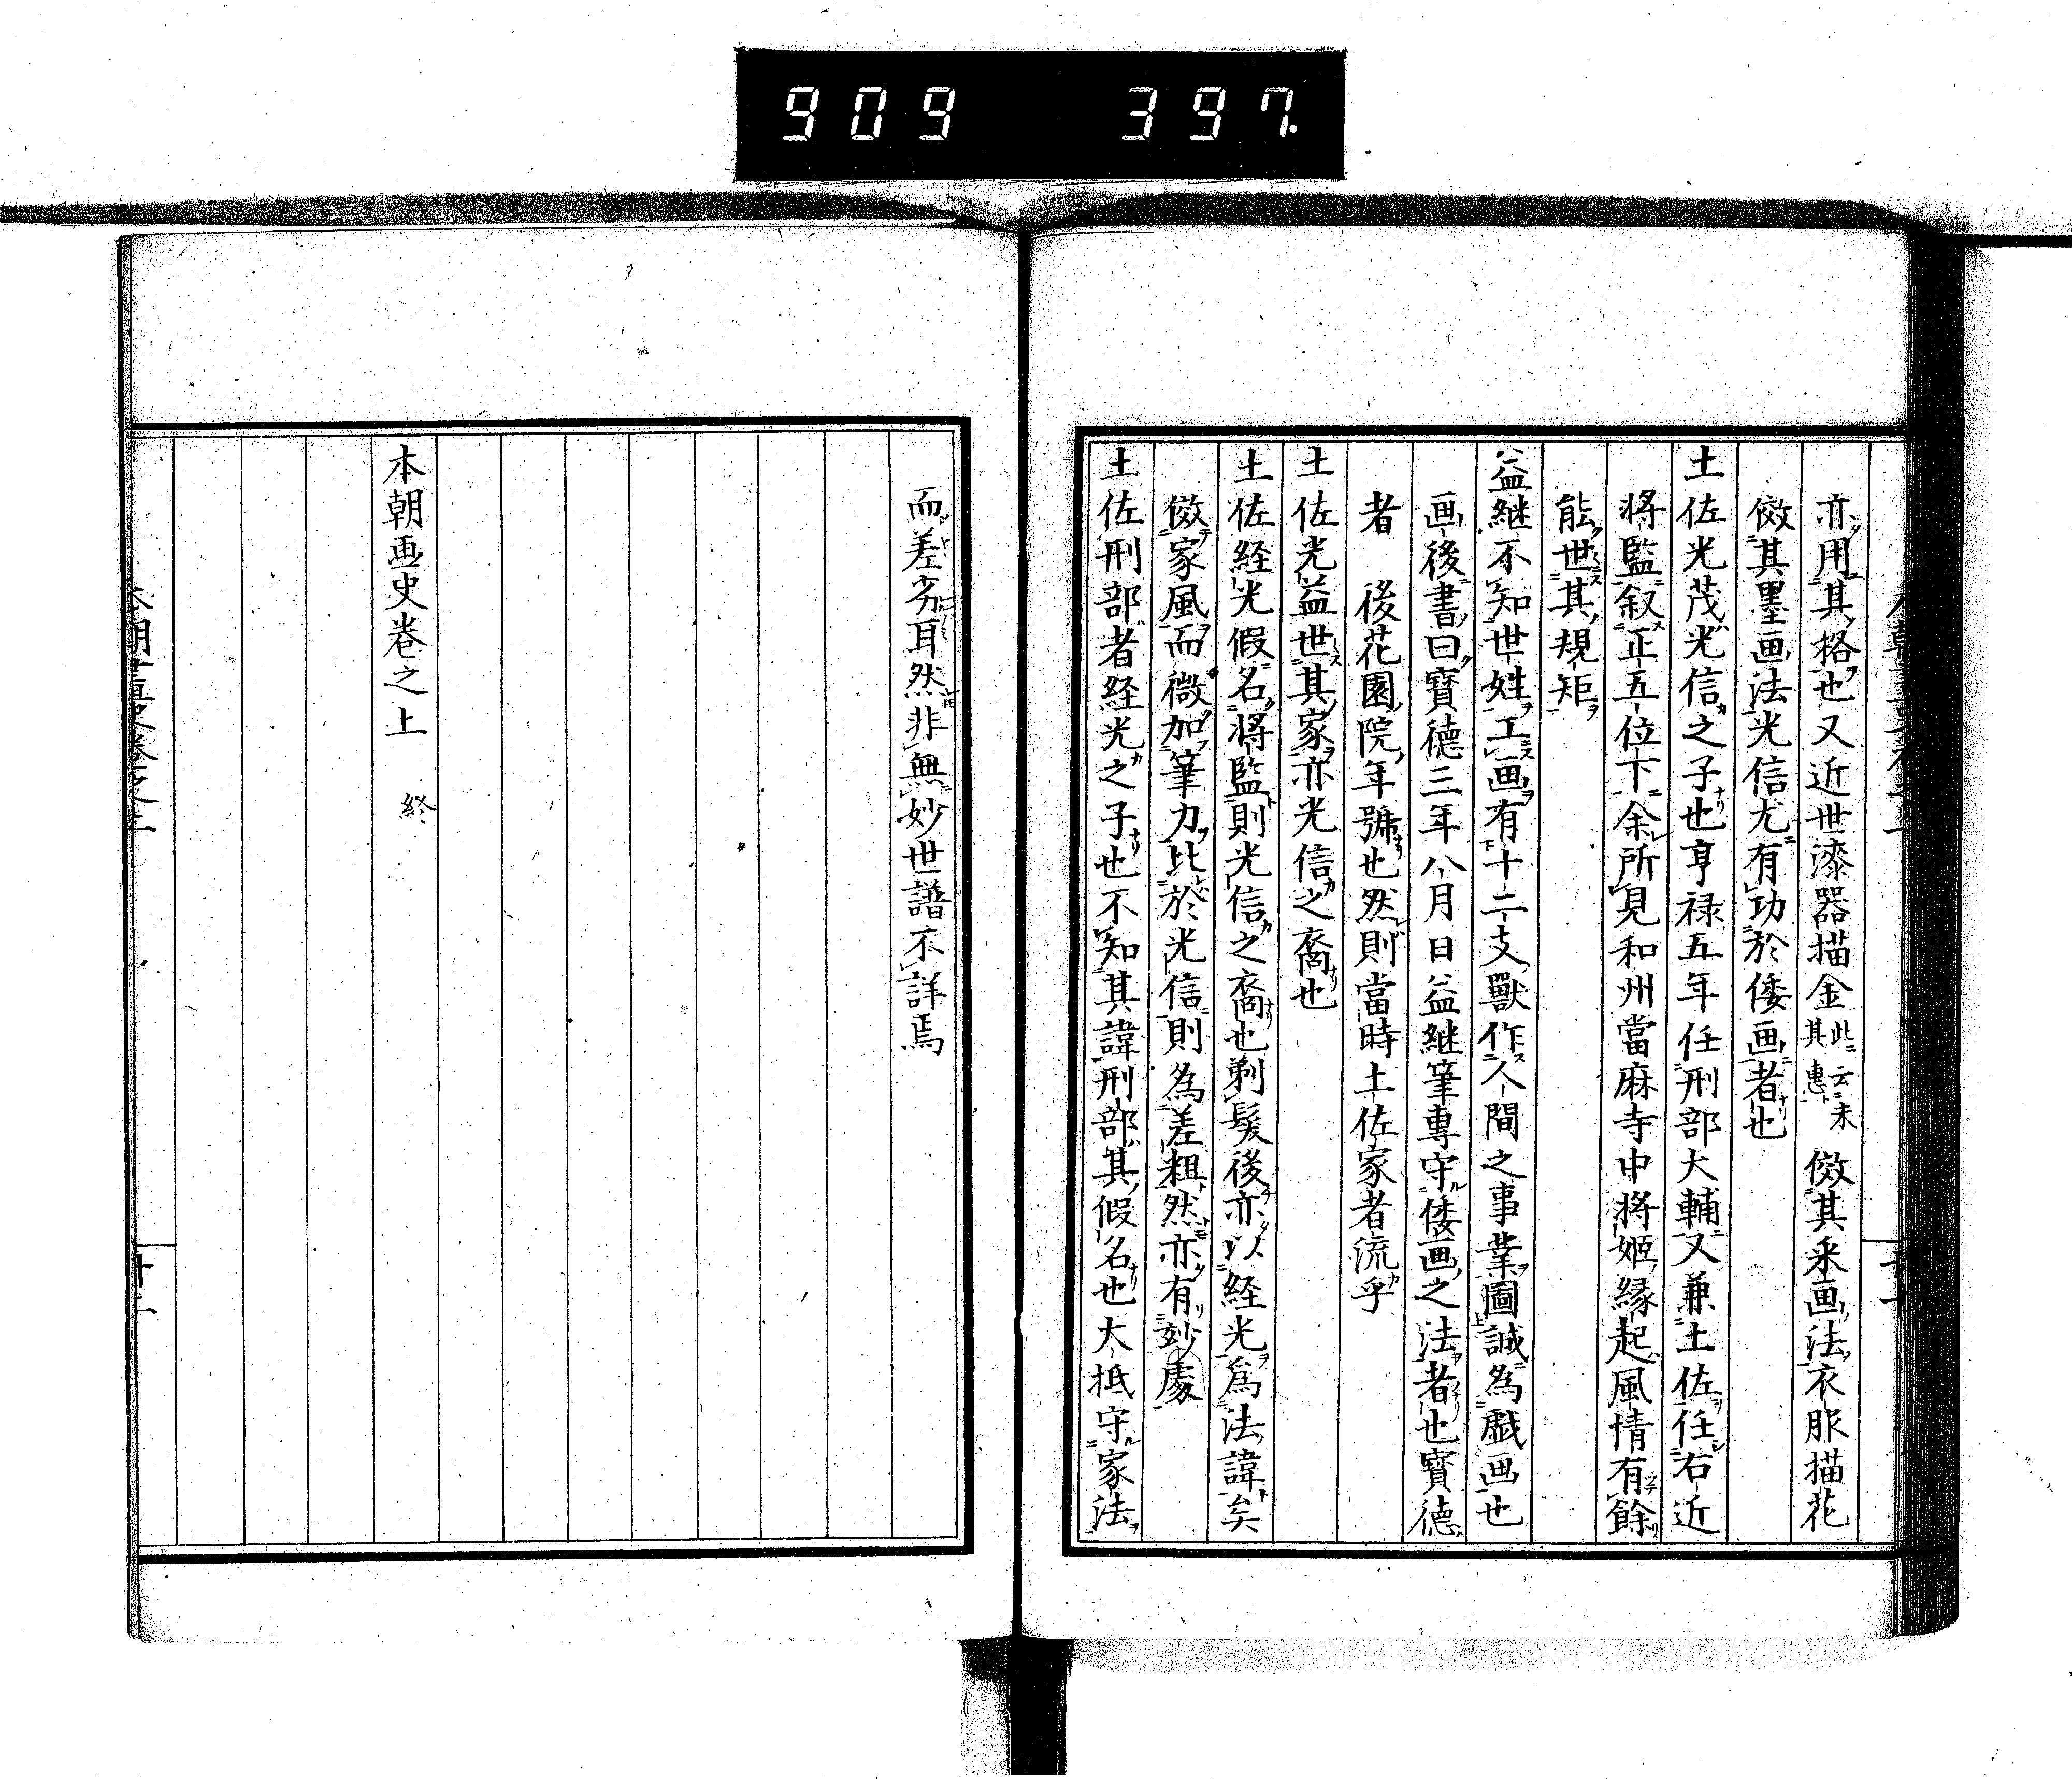 909 397.
亦用其格也又近世漆器描金此云末其恵倣其采画法衣服描花
倣其墨画法光信尤有功於倭画者也
土佐光茂光信之子也亨禄五年任刑部大輔又兼土佐任右近
将監叙正五位下余所見和州當麻寺中将姫縁起風情有餘
能世其規矩
益継不知世姓工画有十二支獸作人間之事業圖誠為戯画也
画後書曰寳徳三年八月日益継筆專守倭画之法者也寳徳
者 後花園院年號也然則當時土佐家者流乎
土佐光益世其家亦光信之裔也
土佐経光假名将監則光信之裔也剃髮後亦以経光爲法諱矣
倣家風而微加筆力比於光信則為差粗然亦有妙處
土佐刑部者経光之子也不知其諱刑部其假名也大抵守家法
而差劣耳然非無妙世譜不詳焉
本朝画史巻之上 終